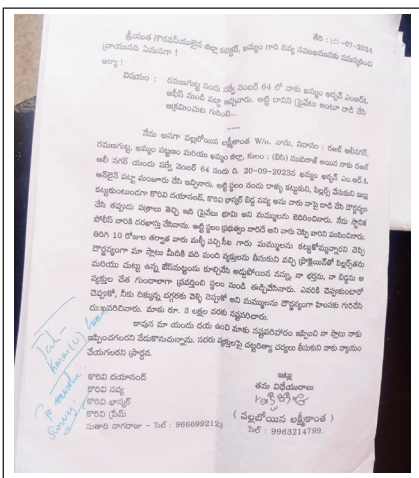 తేది : 10-07-2024
శ్రీయుత గౌరవనీయులైన జిల్లా కలెక్టర్, ఖమ్మం గారి దివ్య సముఖమునకు నమస్కరించి
వ్రాయునది ఏమనగా !
అర్యా !
విషయం : రమణగుట్ట నందు సర్వే నెంబర్ 64 లో నాకు ఖమ్మం అర్బన్ ఎంఆర్ఓ
ఆఫీస్ నుండి పట్టా ఇచ్చినారు. అట్టి దానిని ప్రైవేటు అంటూ దాడి చేసి
ఆక్రమించుట గురించి...
---
నేను అనగా వల్లబోయిన లక్ష్మీకాంత W/o. వాసు, నివాసం : రజబ్ అలీనగర్,
రమణగుట్ట, ఖమ్మం పట్టణం మరియు ఖమ్మం జిల్లా, కులం : (బిసి) ముదిరాజ్ అయిన నాకు రజబ్
అలీ నగర్ యందు సర్వే నెంబర్ 64 నందు ది. 20-09-2023న ఖమ్మం అర్బన్ ఎం.ఆర్.ఓ
ఆన్‌లైన్ పట్టా మంజూరు చేసి ఇచ్చినారు. అట్టి స్థలం నందు రాళ్ళు కట్టుకుని, పిల్లర్స్ వేసుకుని ఇల్లు
కట్టుకుంటుండగా కొరివి దయానంద్, కొరివి భాస్కర్ బిడ్డ నవ్య అను వారు నాపై దాడి చేసి దౌర్జన్యం
చేసి తప్పుడు పత్రాలు తెచ్చి ఇది ప్రైవేటు భూమి అని మమ్ములను బెదిరించినారు. నేను స్థానిక
పోలీస్ వారికి దరఖాస్తు చేసినాను. అట్టి స్థలం ప్రభుత్వం వారిదే అని వారు చెప్పి వారిని పంపించినారు.
తిరిగి 10 రోజుల తర్వాత వారు మళ్ళీ వచ్చి సీఐ గారు మమ్ములను కట్టుకోమ్మన్నారని చెప్పి
దౌర్జన్యంగా మా స్థలం మీదికి పది మంది వ్యక్తులను తీసుకుని వచ్చి ప్రొక్లెయిన్‌తో పిల్లర్స్‌ను
మరియు చుట్టు ఉన్న బేస్‌మట్టంను కూల్చివేసి అడ్డుబోయిన నన్ను, నా భర్తను, నా బిడ్డను ఆ
వ్యక్తుల చేత గుండాలాగా ప్రవర్తించి స్థలం నుండి ఈడ్చివేసినారు. ఎవరికి చెప్పుకుంటారో
చెప్పుకో, నీకు దిక్కున్న దగ్గరకు వెళ్ళి చెప్పుకో అని మమ్ములను దౌర్జన్యంగా హింసకు గురిచేసి
దుఃఖపరిచినారు. మాకు రూ. 3 లక్షల వరకు నష్టపరిచారు.
కావున మా యందు దయ ఉంచి మాకు నష్టపరిహారం ఇప్పించి నా స్థలం నాకు
ఇప్పించగలరని వేడుకొనుచున్నాను. సదరు వ్యక్తులపై చట్టరిత్యా చర్యలు తీసుకుని నాకు న్యాయం
చేయగలరని ప్రార్థన.
కొరివి దయానంద్
కొరివి నవ్య
కొరివి భాస్కర్
కొరివి ప్రేమ్
సుతారి నాగరాజు - సెల్ : 9666992123
ఇట్లు
తమ విధేయురాలు
( వల్లబోయిన లక్ష్మీకాంత )
సెల్ : 9963214799.